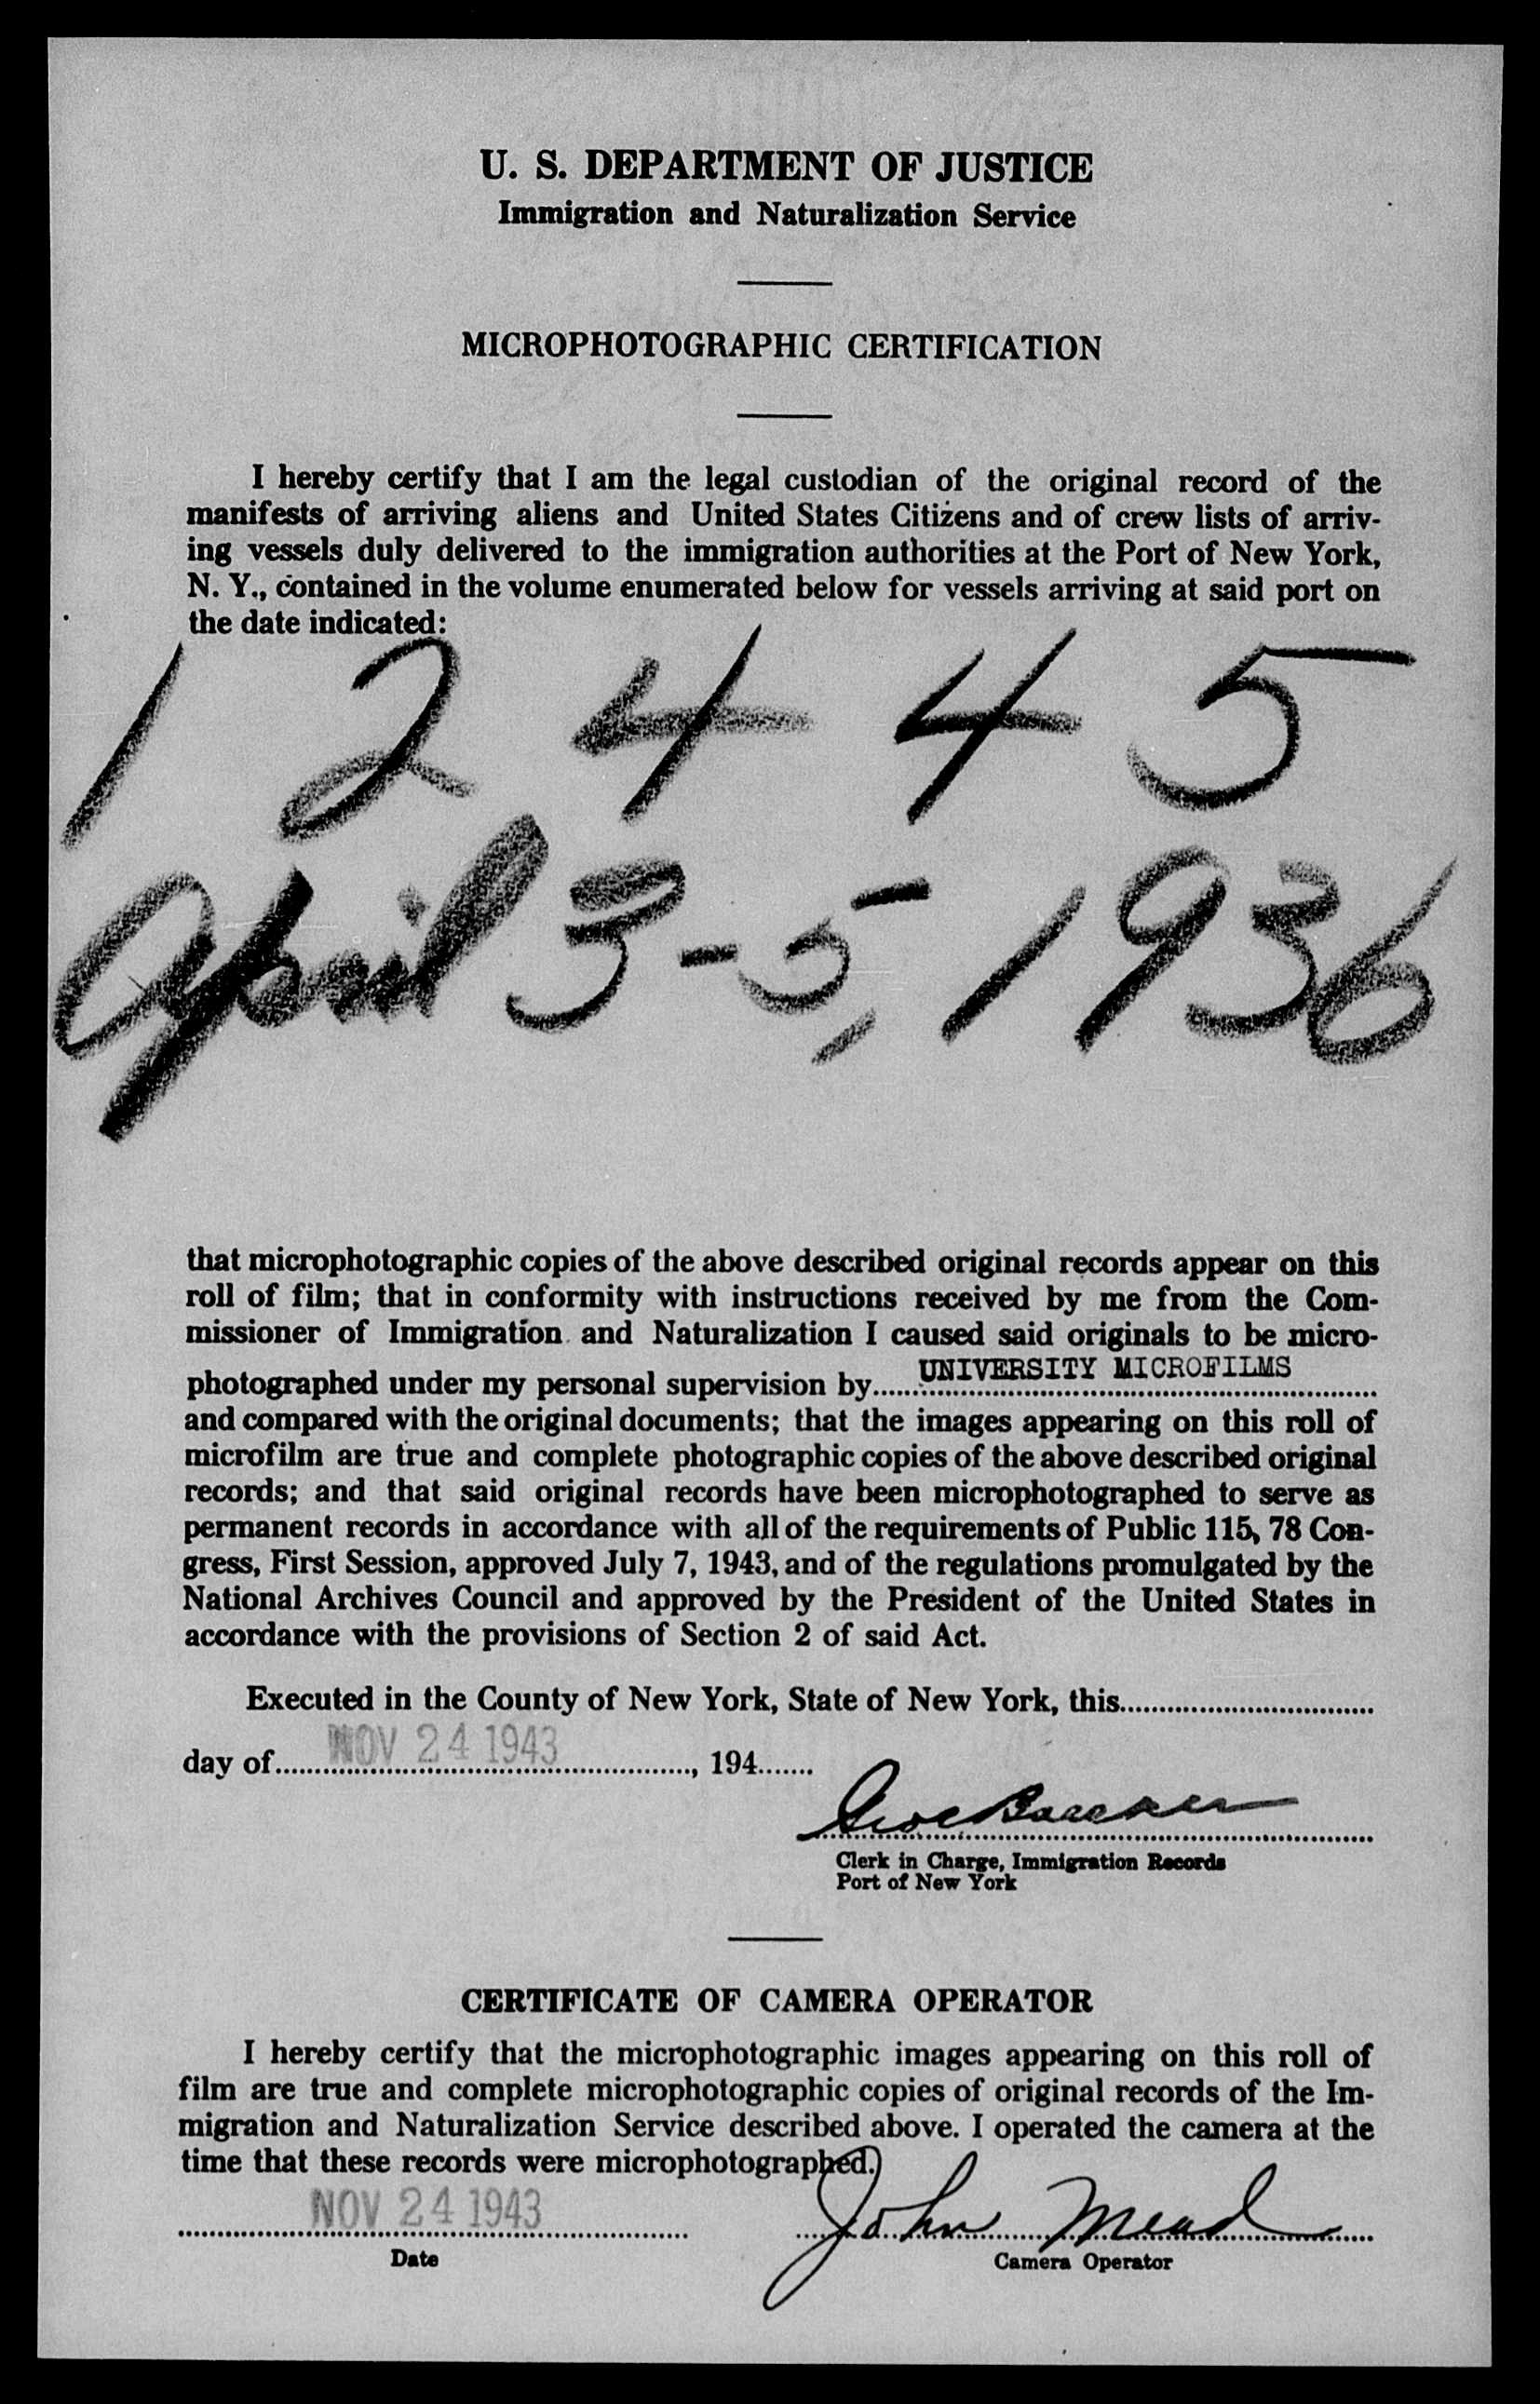 U. S. DEPARTMENT OF JUSTICE
Immigration and Naturalization Service
MICROPHOTOGRAPHIC CERTIFICATION
I hereby certify that I am the legal custodian of the original record of the
manifests of arriving aliens and United States Citizens and of crew lists of arriv-
ing vessels duly delivered to the immigration authorities at the Port of New York,
N. Y., contained in the volume enumerated below for vessels arriving at said port on
the date indicated:
1 2 4 4 5
April 3-5, 1936
that microphotographic copies of the above described original records appear on this
roll of film; that in conformity with instructions received by me from the Com-
missioner of Immigration and Naturalization I caused said originals to be micro-
photographed under my personal supervision by UNIVERSITY MICROFILMS
and compared with the original documents; that the images appearing on this roll of
microfilm are true and complete photographic copies of the above described original
records; and that said original records have been microphotographed to serve as
permanent records in accordance with all of the requirements of Public 115, 78 Con-
gress, First Session, approved July 7, 1943, and of the regulations promulgated by the
National Archives Council and approved by the President of the United States in
accordance with the provisions of Section 2 of said Act.
Executed in the County of New York, State of New York, this
day of NOV 24 1943, 194
Clerk in Charge, Immigration Records
Port of New York
CERTIFICATE OF CAMERA OPERATOR
I hereby certify that the microphotographic images appearing on this roll of
film are true and complete microphotographic copies of original records of the Im-
migration and Naturalization Service described above. I operated the camera at the
time that these records were microphotographed.
NOV 24 1943 John Mead
Date Camera Operator